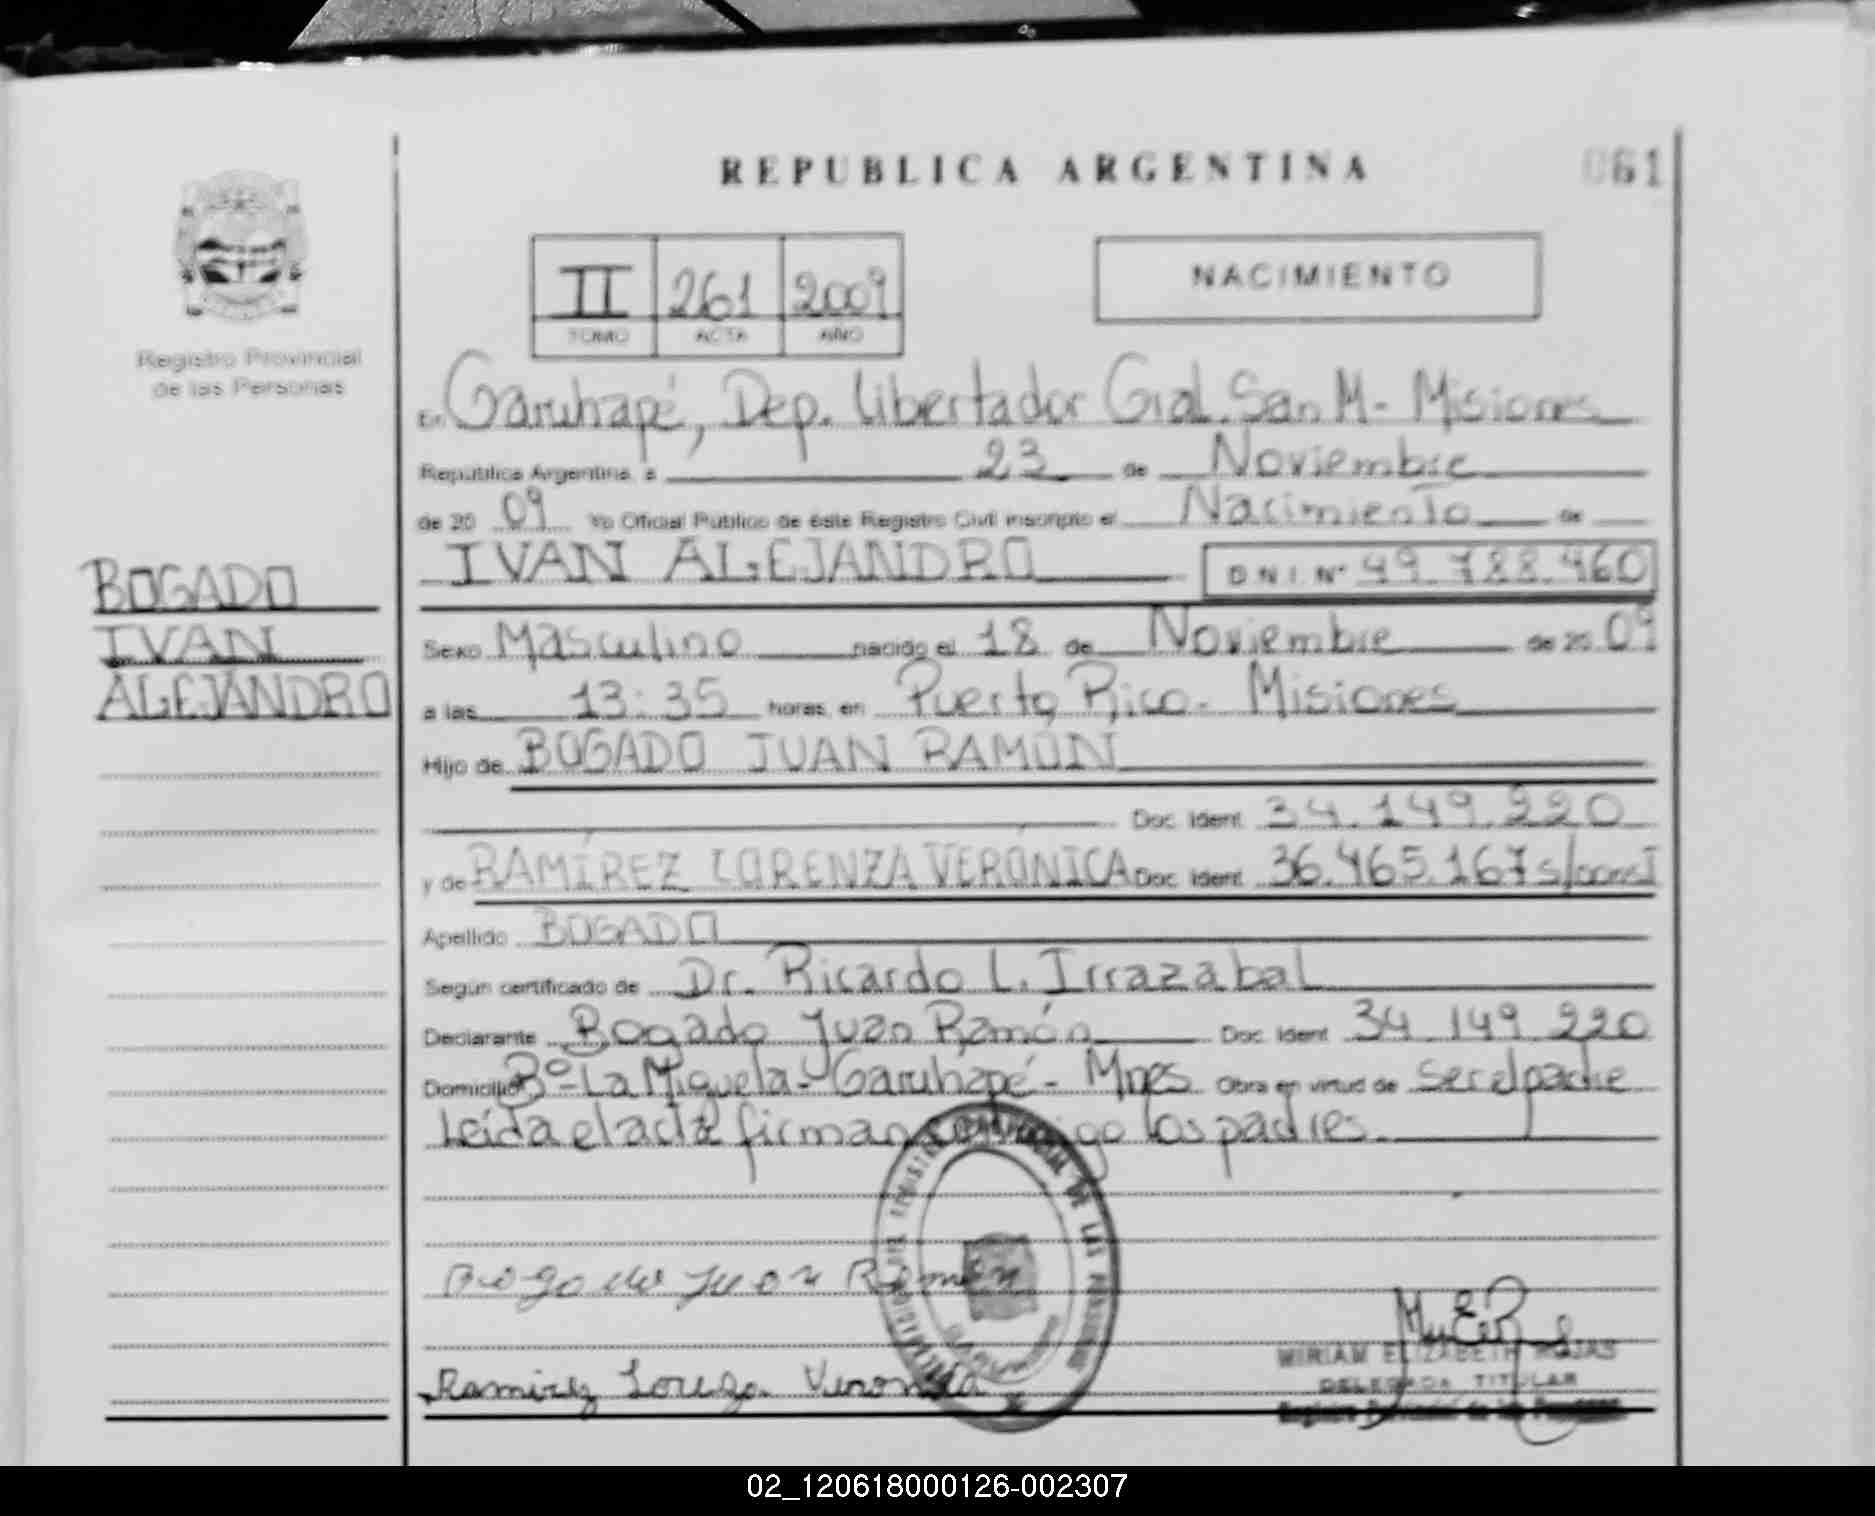 REPUBLICA ARGENTINA
061
II 261 2009
TOMO ACTA AÑO
NACIMIENTO
Registro Provincial
de las Personas
En Garuhapé, Dep. Libertador Gral. San M - Misiones
República Argentina, a 23 de Noviembre
de 20 09 Yo Oficial Público de éste Registro Civil inscripto el Nacimiento de
IVAN ALEJANDRO D N I Nº 49.788.460
BOGADO
IVAN
ALEJANDRO
Sexo Masculino nacido el 18 de Noviembre de 20 09
a las 13:35 horas, en Puerto Rico - Misiones
Hijo de BOGADO JUAN RAMÓN
Doc. Ident. 34.149.220
y de RAMÍREZ LORENZA VERONICA Doc. Ident. 36.465.167 s/const
Apellido BOGADO
Según certificado de Dr. Ricardo L. Irrazabal
Declarante Bogado Juan Ramón Doc. Ident. 34.149.220
Domicilio Bº - La Miguela - Garuhapé - Mnes Obra en virtud de ser el padre
Leída el acta firman conmigo los padres.
Bogado Juan Ramón
Ramirez Lorenza Veronica
MIRIAM ELIZABETH ROJAS
DELEGADA TITULAR
Registro Provincial de las Personas
02_120618000126-002307